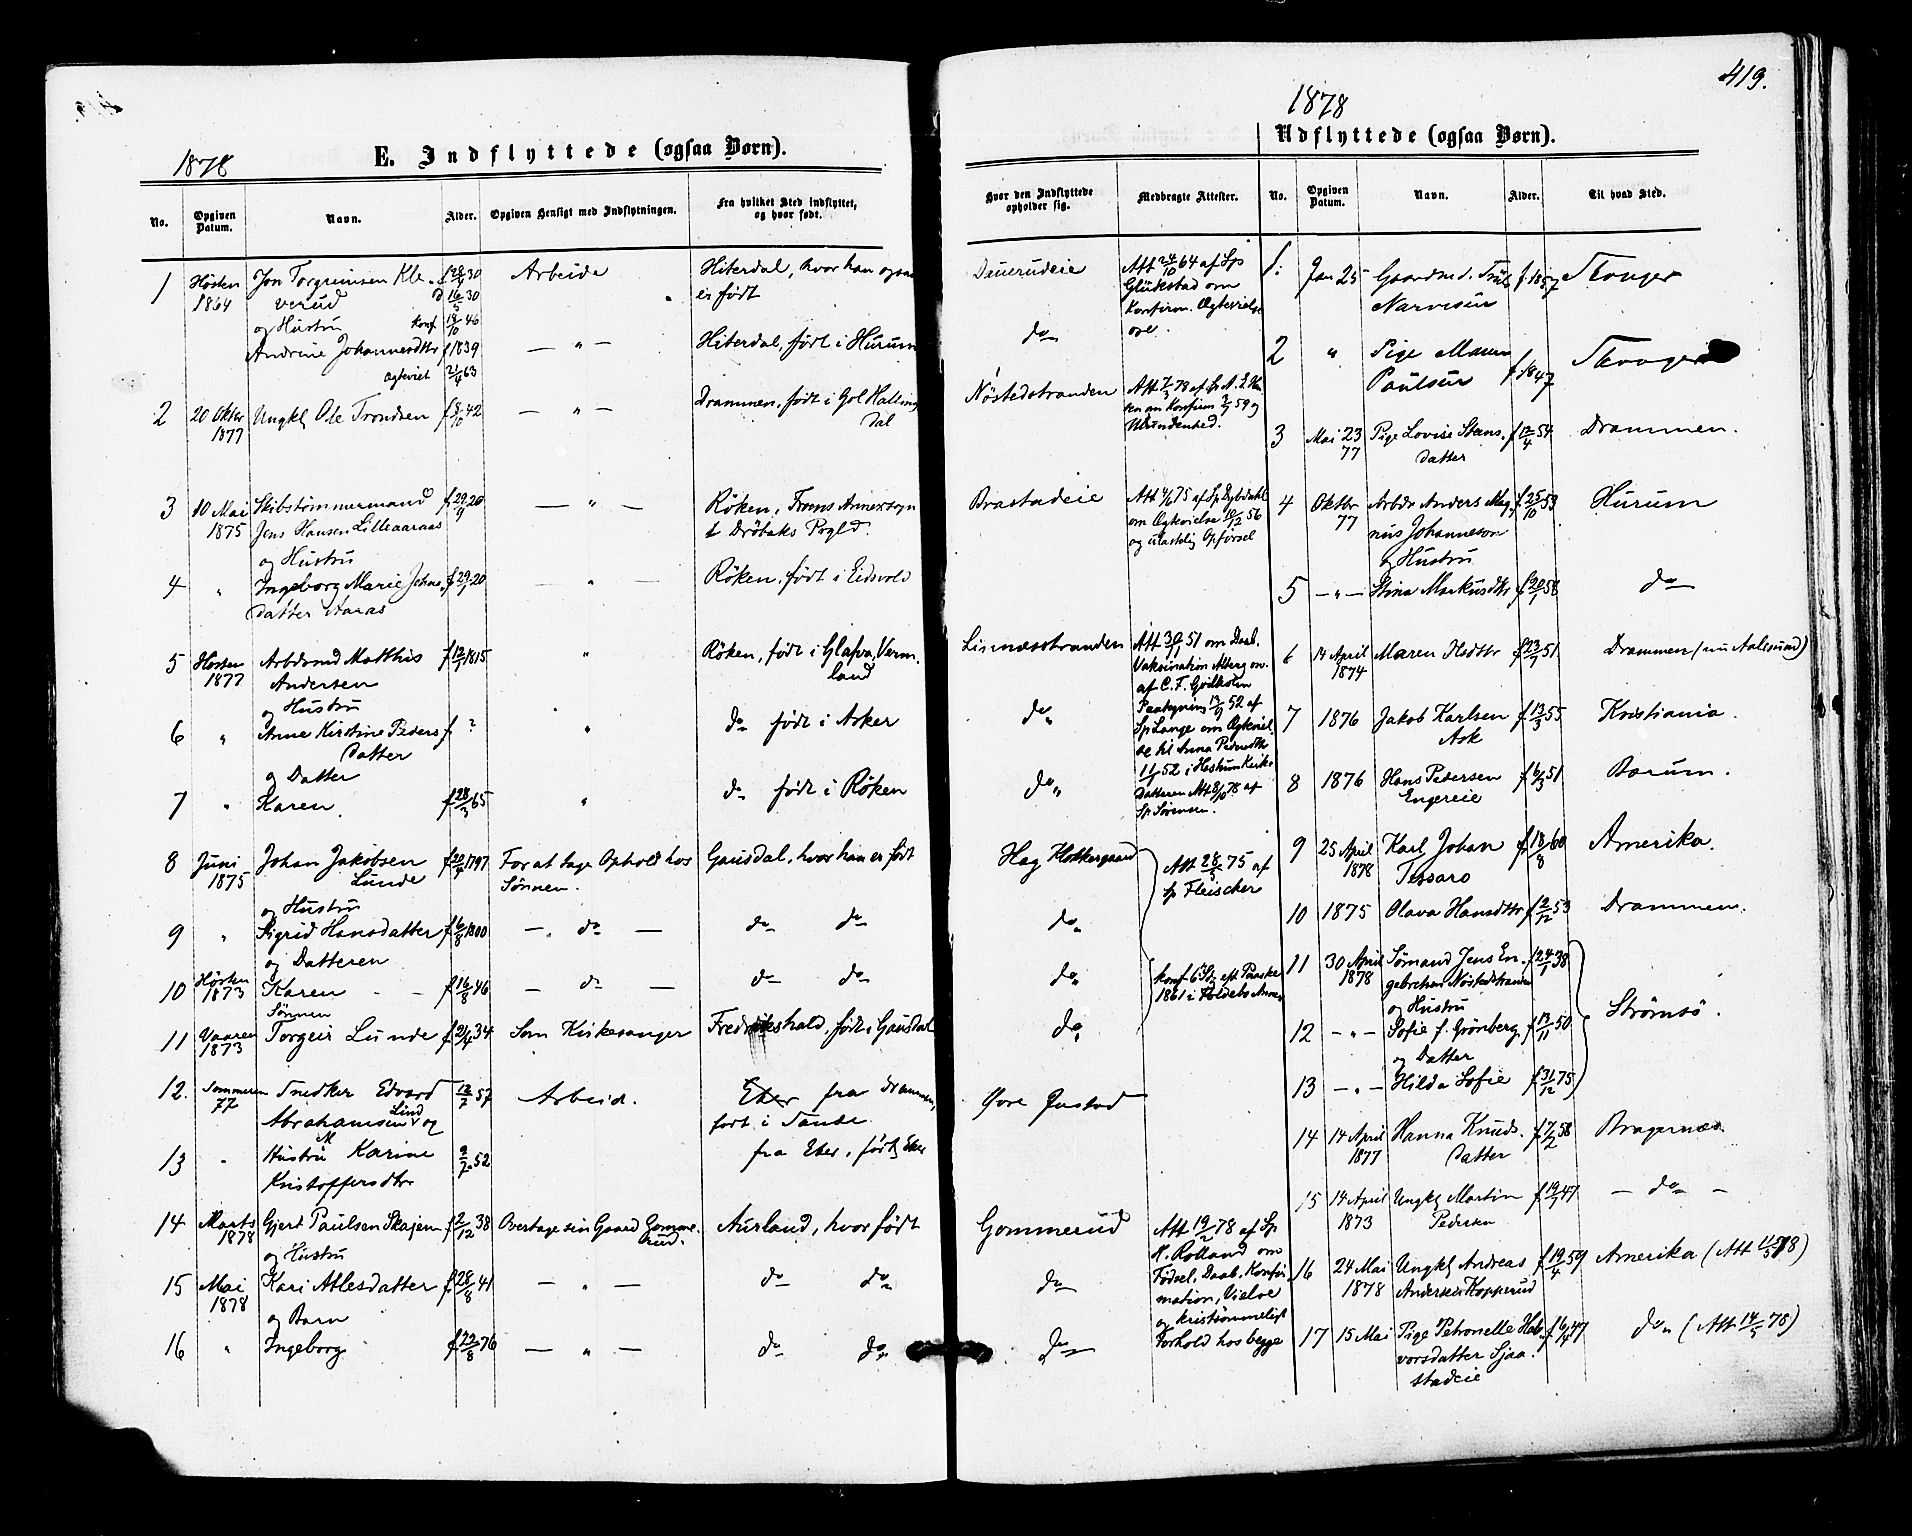 419.
1878
1878
E. Indflyttede (ogsaa Børn).
Udflyttede (ogsaa Børn).
No.
Opgiven Datum.
Navn.
Alder.
Opgiven Hensigt med Indflytningen.
Fra hvilket Sted indflyttet, og hvor født.
Hvor den Indflyttede opholder sig.
Medbragte Attester.
No.
Opgiven Datum.
Navn.
Alder.
Til hvad Sted.
1 Høsten Jon Torgrimsen Kle- Arbeide Hiterdal, hvor han ogsaa
1864 verud er født
og Hustru konf
Andrine Johannesdtr f 1839 — " — Hiterdal, født i Hurum
Ægteviet 21/4 63
2 20 Okter Ungkl Ole Trondsen 42 — " — Drammen, født i Gol Halling
1877 dal
3 10 Mai Skibstømmermand f 29/9 20 — " — Röken, Froms Annexsogn
1875 Jens Hansen Lilleaaraas t Dröbaks Prgld.
og Hustru
4 " Ingeborg Marie Johns f 29/7 20 — " — Röken, født i Eidsvold
datter Aaraas
5 Høsten Arbdsmd Matthis f 12/7 1815 " Röken, født i Glafva, Verm.
1877 Andersen land
og Hustru
6 " Anne Kirstine Peders f ? " do født i Asker
datter
og Datter
7 " Karen. f 28/3 65 " do født i Röken
8 Juni Johan Jakobsen 1797 For at tage Ophold hos Gausdal, hvor han er født
1875 Lunde Sønnen.
og Hustru
9 " Sigrid Hansdatter f 6/8 1800 — do — do do
og Datteren
10 Høsten Karen - - f 16/8 46 — do — do do
1873 Sønnen
11 Vaaren Torgeir Lunde f 2/4 34 Som Kirkesanger Fredrikshald, født i Gausdal
1873
12. Sommeren Snedker Edvard 12/7 57 Arbeid. Eker fra Drammen,
77 Abrahamsen Lind og født i Sande
13 " Hustru M Karine 9/7 52 fra Eker, født Eker
Kristoffersdtr
14 Marts Gjert Paulsen Skajem f 2/12 38 Overtage sin Gaard Gomme- Aurland, hvor født
1878 og Hustru rud.
15 Mai Kari Atlesdatter f 28/8 41 — " — do do
1878 og Barn
16 " Ingeborg f 22/8 76 — " — do do
Dauerudeie Att 24/10 64 af Sps
Glükstad om
Konfirm. Ægtevielse
do
Nøstedstranden
Brastadeie Att 4/6 75 af Sp Dybdahl
om Ægtevielse 10/12 56
og ulastelig Opførsel
Linnæsstranden Att 51 om Daab,
Vaksination
do Lange om Ægteviel
se til Anna Pedersdtr
52 i Haslum Kirke
do Datteren Att 8/10 78 af
Sp Sørensen.
Hag Hokkergaard Att 28/5 75 af
sp Fleischer
do
do konf 6 S. eft Paaske
1861 i
do
Øvre
Gommerud Att 19/2 78 af Sp
N. Rolland om
Fødsel, Daab, Konfir-
do mation, Vielse
og kristömmeligt
do Forhold hos begge
1. Jan 25 f 1857 Skouger
2 " Pige Maren f 1847 Skouger
Paulsen
3 Mai 23 Pige Lovise Stens- f 12/4 54 Drammen.
77 datter
4 Oktbr Arbdr Anders Mag- f 25/10 53 Hurum
77 nus Johanneson
og Hustru
5 — " — Stina Markusdtr f 20/1 58 do
6 14 April Maren f 23/7 51. Drammen (nu Aalesund)
1874
7 1876 Jakob Karlsen f 13/3 55 Kristiania.
Ask
8 1876 Hans Pedersen f 6/3 51 Bærum.
Engereie
9 25 April Karl Johan f 18/8 60 Amerika.
1878 Tessaro
10 1875 Olava Hansdtr f 2/12 53 Drammen.
11 30 April Sømand Jens En- f 24/1 38
1878 gebretsen Nøstedstranden
og Hustru
12 — " — Sofie f. Grönberg. f 13/11 50 Strömsö.
og Datter
13 — " — Hilda Sofie f 31/12 75
14 14 April Hanna Knuds- f 7/2 58 Bragernæs
1877 datter
15 14 April Ungkl Martin f 19/7 47 — do —
1873 Pedersen
16 24 Mai Ungkl Andreas f 19/4 59 Amerika (Att 78)
1878 Andersen Kopperud
17 15 Mai Pige Petronelle Hal- 47 do (Att 78)
vorsdatter Sjaa-
stadeie